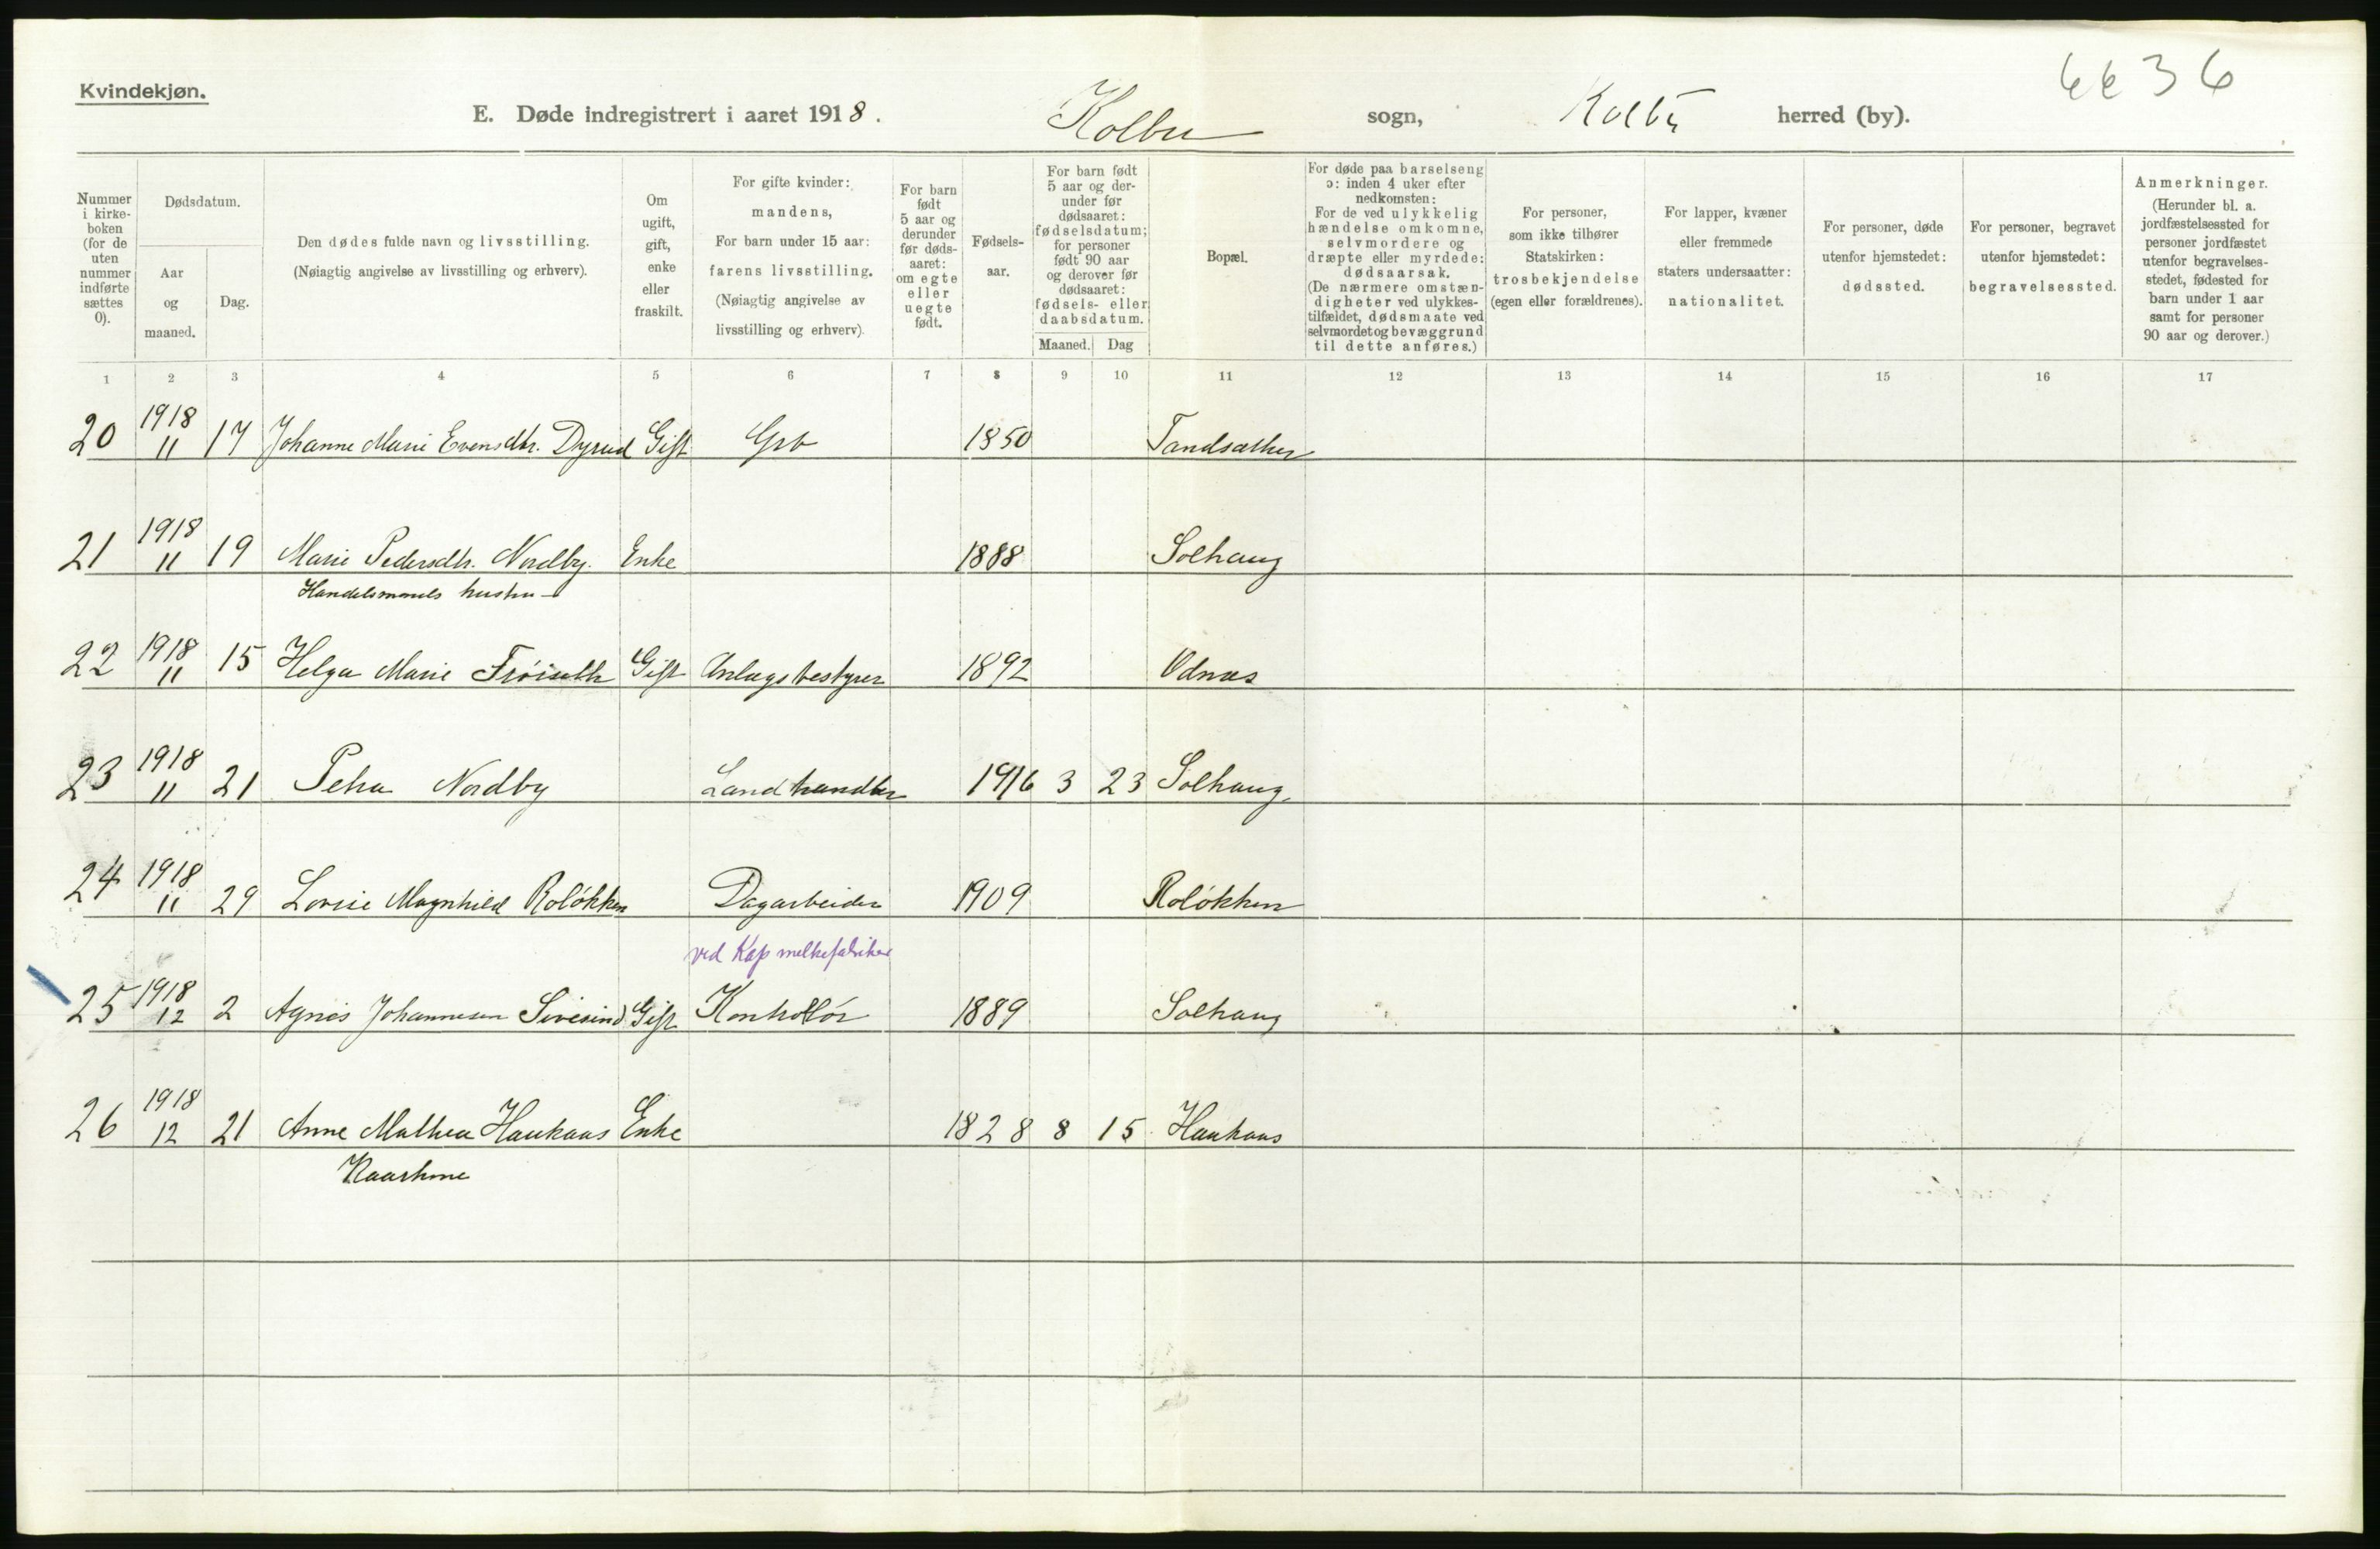 Kvindekjøn.
6636
E. Døde indregistrert i aaret 1918. Kolbu sogn, Kolbu herred (by).
Nummer i kirke-boken (for de uten nummer indførte sættes 0).
Dødsdatum.
Aar og maaned.
Dag.
Den dødes fulde navn og livsstilling.
(Nøiagtig angivelse av livsstilling og erhverv).
Om ugift, gift, enke eller fraskilt.
For gifte kvinder: mandens,
For barn under 15 aar: farens livsstilling.
(Nøiagtig angivelse av livsstilling og erhverv).
For barn født 5 aar og derunder før døds-aaret: om egte eller uegte født.
Fødsels-aar.
For barn født 5 aar og der-under før dødsaaret: fødselsdatum; for personer født 90 aar og derover før dødsaaret: fødsels- eller daabsdatum.
Maaned. Dag
Bopæl.
For døde paa barselseng ɔ: inden 4 uker efter nedkomsten:
For de ved ulykkelig hændelse omkomne, selvmordere og dræpte eller myrdede: dødsaarsak.
(De nærmere omstæn-digheter ved ulykkes-tilfældet, dødsmaate ved selvmordet og bevæggrund til dette anføres.)
For personer, som ikke tilhører Statskirken: trosbekjendelse (egen eller forældrenes).
For lapper, kvæner eller fremmede staters undersaatter: nationalitet.
For personer, døde utenfor hjemstedet: dødssted.
For personer, begravet utenfor hjemstedet: begravelsessted.
Anmerkninger.
(Herunder bl. a. jordfæstelsessted for personer jordfæstet utenfor begravelses-stedet, fødested for barn under 1 aar samt for personer 90 aar og derover.)
1 2 3 4 5 6 7 8 9 10 11 12 13 14 15 16 17
20 1918 11 17 Johanne Marie Evensdtr. Dyrud Gift Grb 1850 Tandsæther
21 1918 11 19 Marie Pedersdtr. Nordby. Enke 1888 Solhaug
Handelsmands hustru
22 1918 11 15 Helga Marie Frøiseth Gift Anlægsbestyrer 1892 Odnæs
23 1918 11 21 Petra Nordby Landhandler 1916 3 23 Solhaug.
24 1918 11 29 Lovise Magnhild Roløkken Dagarbeider 1909 Roløkken
ved Kap melkefabriker
25 1918 12 2 Agnes Johannesen Sivesind Gift Kontrollør 1889 Solhaug
26 1918 12 21 Anne Mathea Haukaas Enke 1828 8 15 Haukaas
Kaarkone